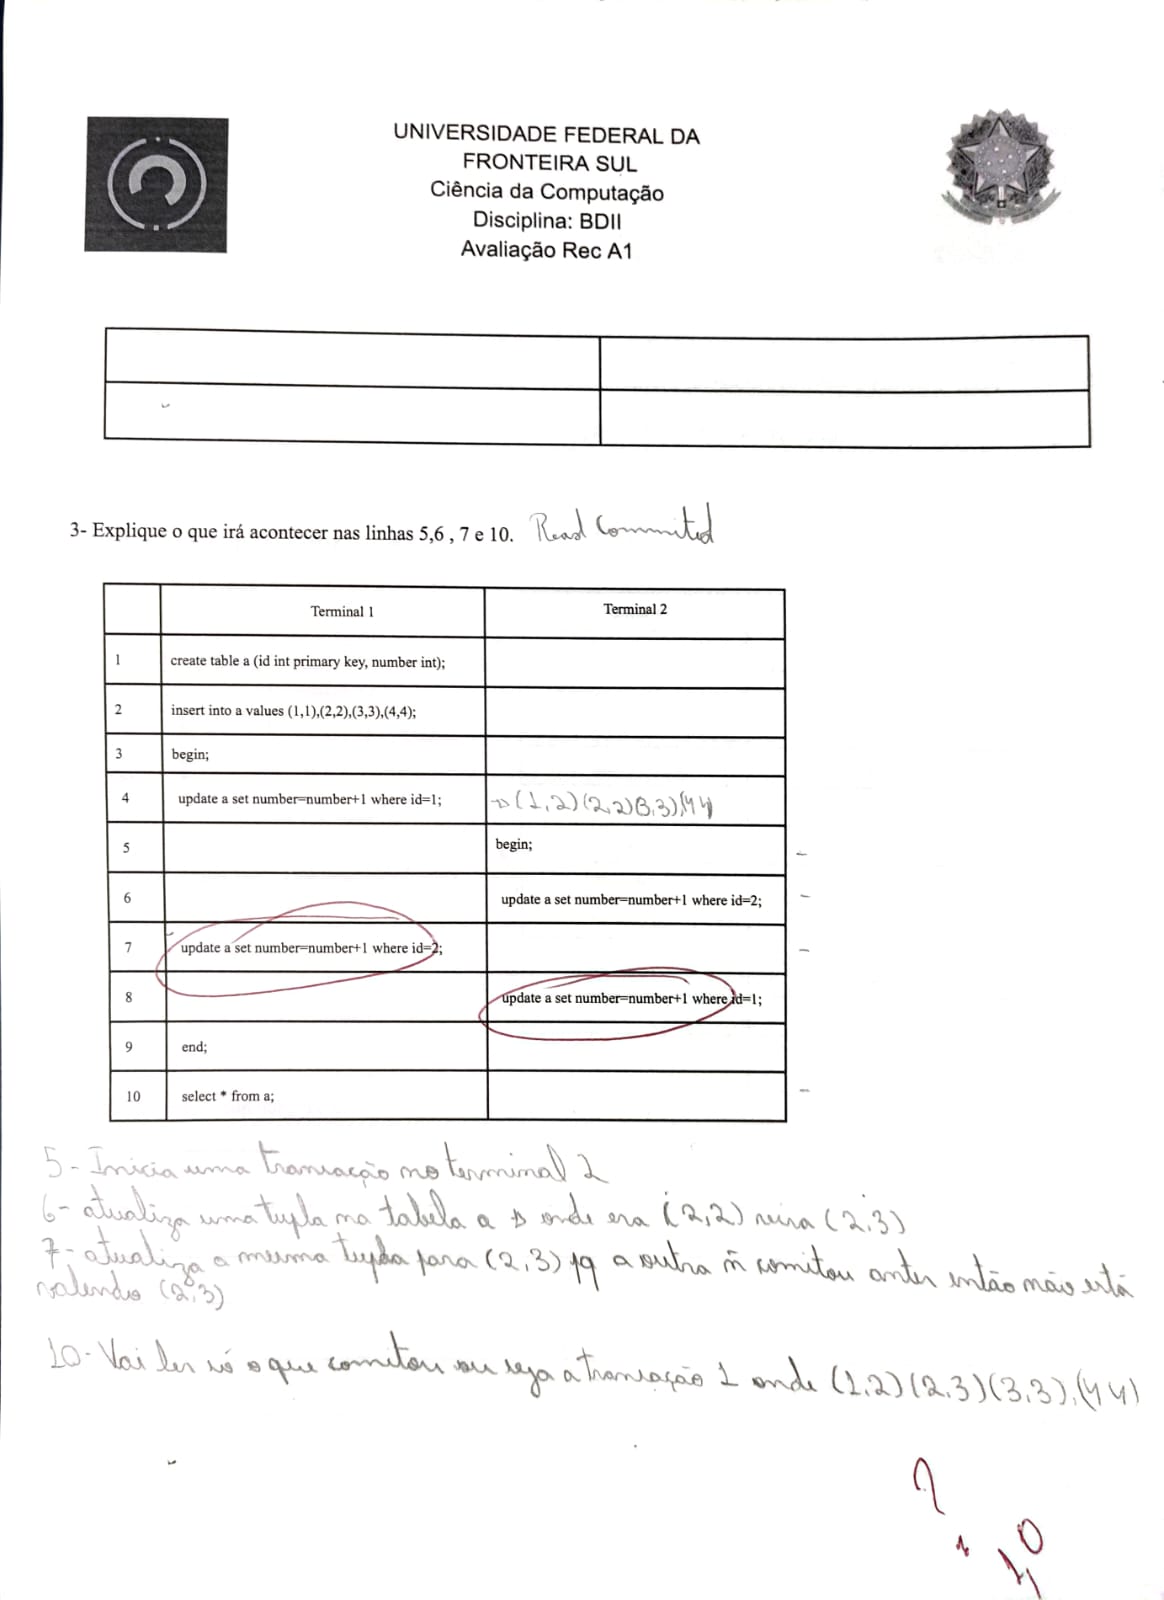 UNIVERSIDADE FEDERAL DA
FRONTEIRA SUL
Ciência da Computação
Disciplina: BDII
Avaliação Rec A1
3- Explique o que irá acontecer nas linhas 5,6 , 7 e 10. Read Commited
Terminal 1 Terminal 2
1 create table a (id int primary key, number int);
2 insert into a values (1,1),(2,2),(3,3),(4,4);
3 begin;
4 update a set number=number+1 where id=1; → (1,2)(2,2)(3,3),(4 4)
5 begin;
6 update a set number=number+1 where id=2;
7 update a set number=number+1 where id=2;
8 update a set number=number+1 where id=1;
9 end;
10 select * from a;
5- Inicia uma transação no terminal 2
6- atualiza uma tupla na tabela a → onde era (2,2) vira (2,3)
7- atualiza a mesma tupla para (2,3) pq a outra ñ comitou antes então não está
valendo (2,3)
10- Vai ler só o que comitou ou seja a transação 1 onde (1,2)(2,3)(3,3),(4 4)
?
1,0